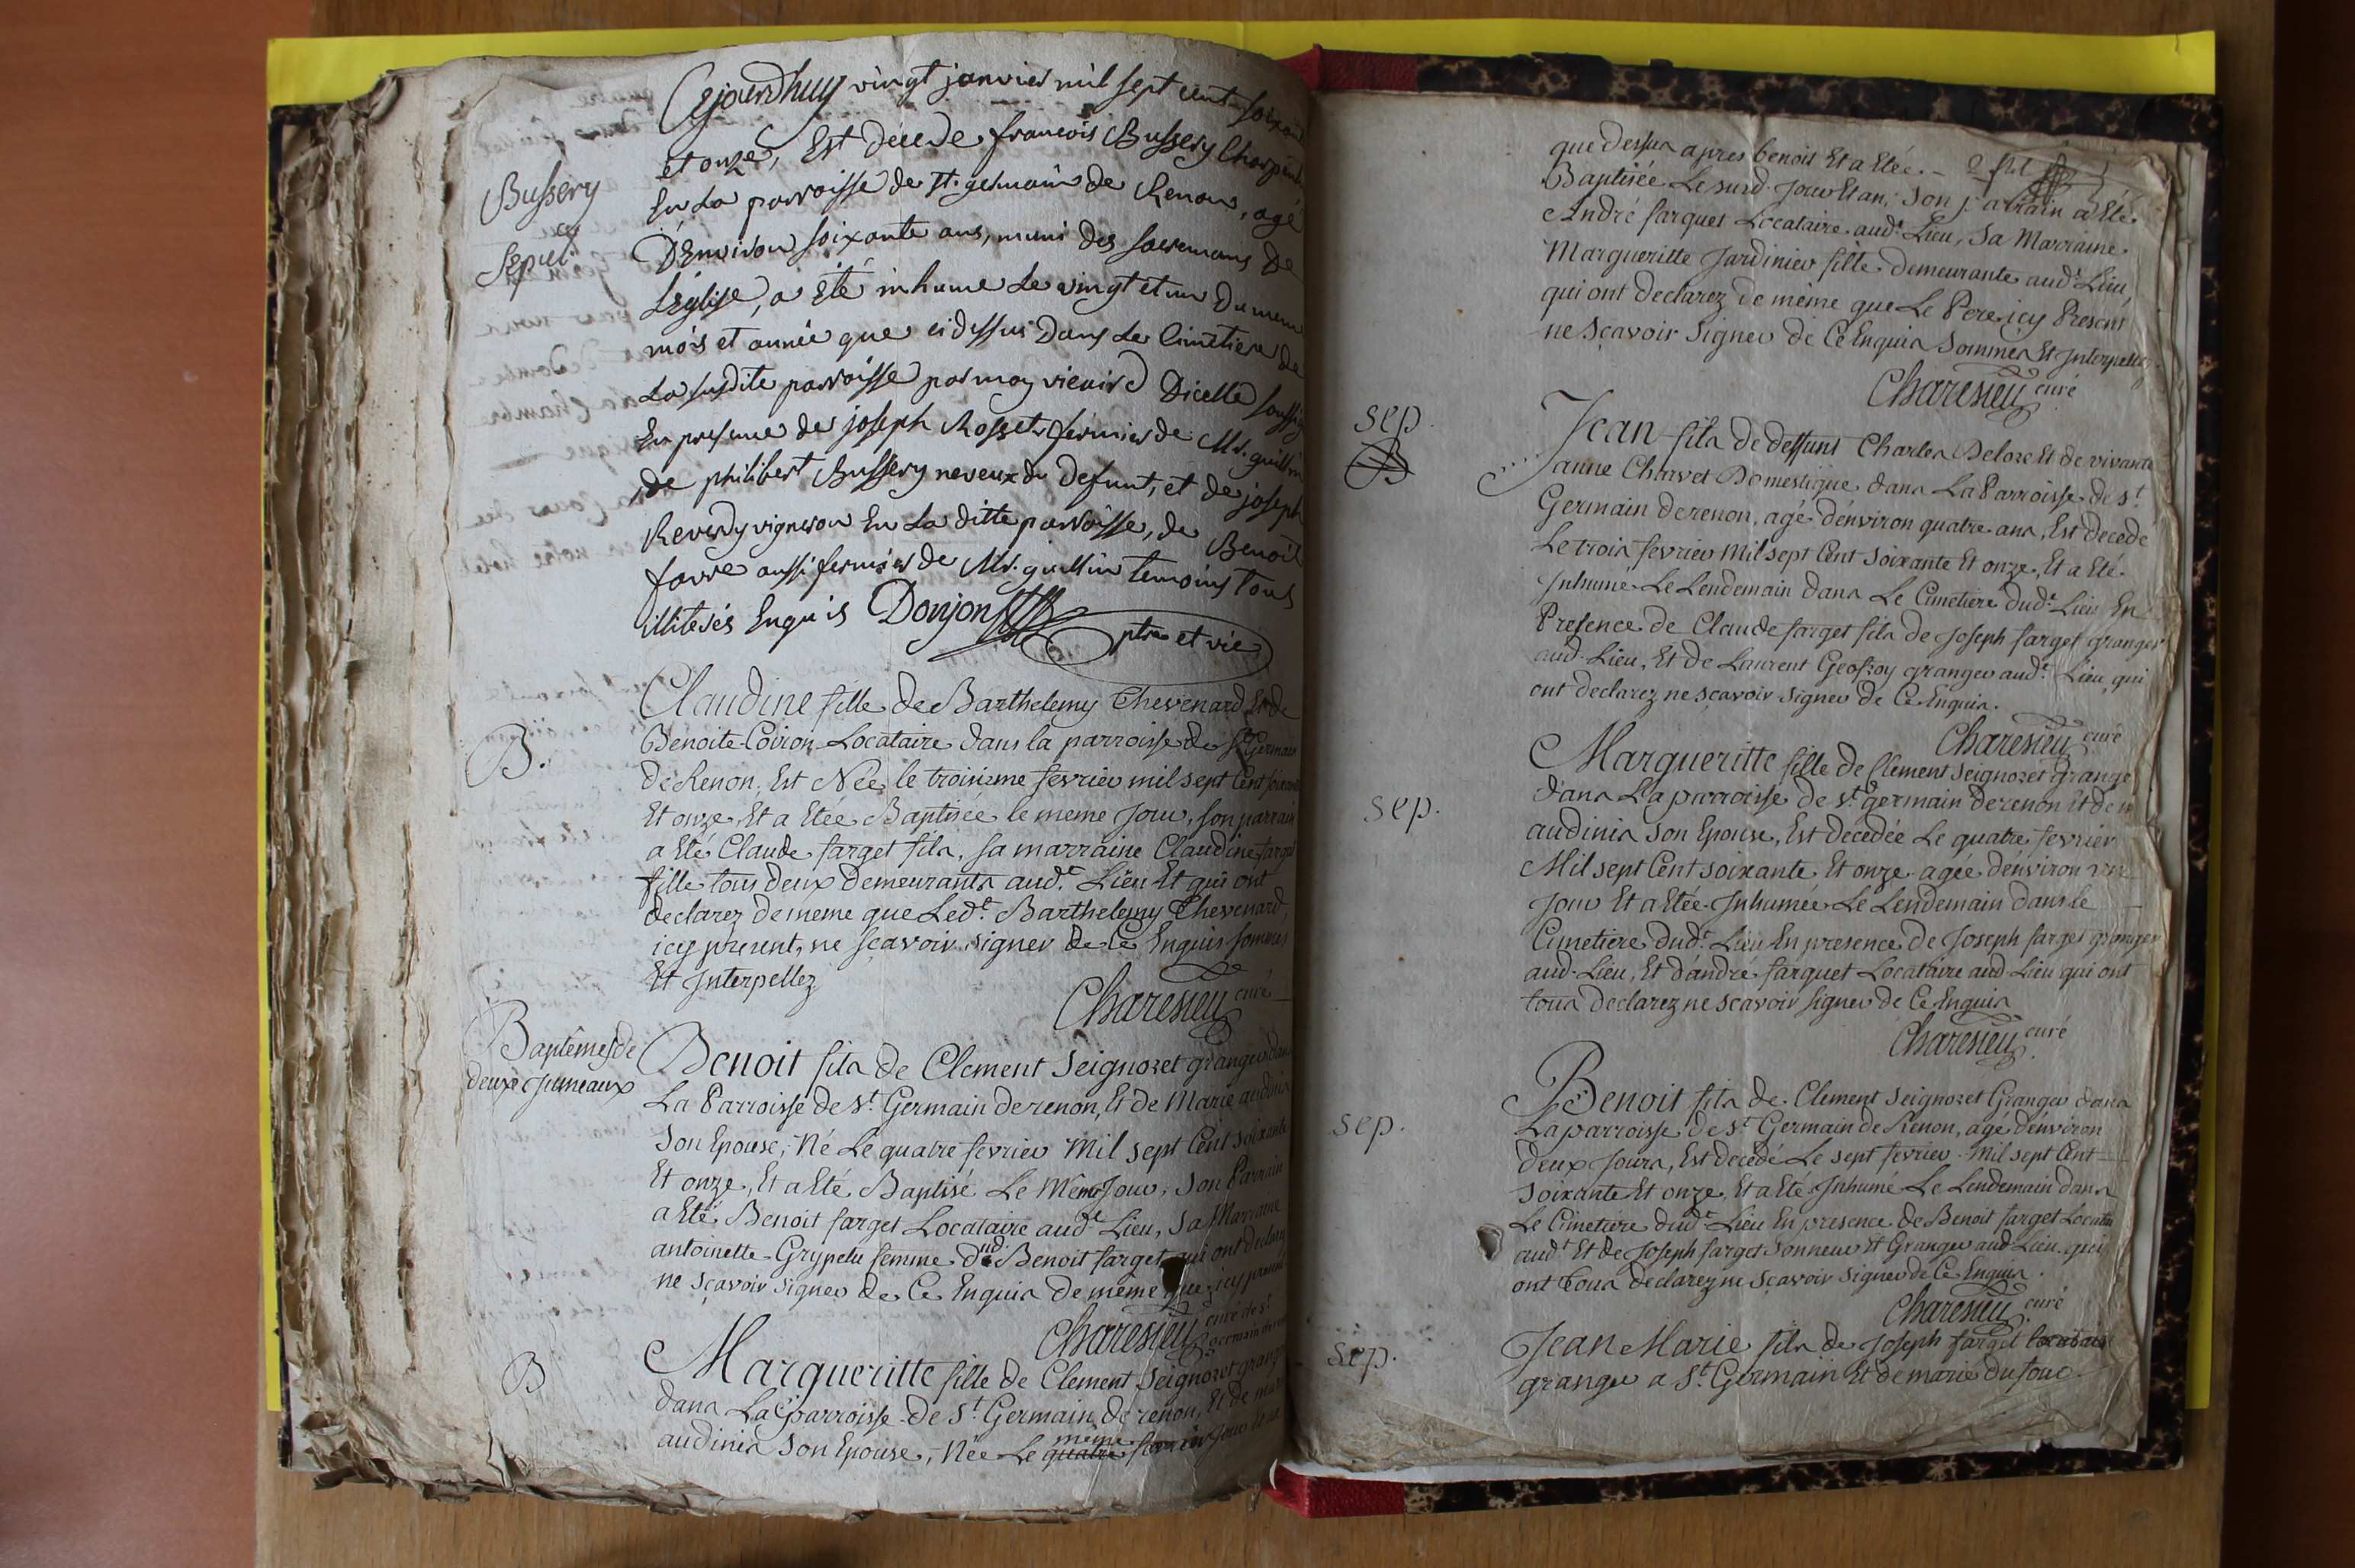 Cejourdhuy vingt janvier mil sept cent soixante
et onze, Est décédé françois Bussery Charpent
Bussery
En La parroisse de st. germain de Renon, agé
D'Environ soixante ans, muni des sacremans De
Sepult.
L'église, a été inhumé le vingt et un du meme
mois et année que cidessus Dans Le Cimetiere de
La susdite parroisse par moy vicaire Dicelle soussig
En presence de joseph Rosset fermier de Mr. guillin
de philibert Bussery neveux du defunt, et de joseph
Reverdy vigneron En La ditte parroisse, de Benoit
favre aussi fermier de Mr. guillin temoins tous
illiterés Enquis Donjon ptre et vic
Claudine fille de Barthelemy Chevenard Et de
B.
Benoite Coiron Locataire dans la parroisse de St Germain
de Renon, Est Née le troisieme fevrier mil sept Cent soixante
Et onze, Et a Etée Baptisée le meme Jour, son parrain
a Eté Claude farget fils, sa marraine Claudine farget
fille tous deux Demeurants aud.t Lieu Et qui ont
declarez de meme que Led.t Barthelemy Chevenard,
icy present, ne sçavoir signer de Ce Enquis sommés
Et Interpellez
Charesieu curé
Baptêmes de
deux Jumeaux
Benoit fils de Clement Seignoret granger dans
La Parroisse de St. Germain derenon, Et de Marie audinis
Son Epouse, Né Le quatre fevrier Mil sept Cent soixante
Et onze, Et a Eté Baptisé Le Meme Jour, Son Parrain
a Eté Benoit farget Locataire aud.t Lieu, Sa Marraine
antoinette Grypelu femme dud Benoit farget qui ont declarez
ne sçavoir signer de Ce Enquis De même que icy present
Charesieu curé de st
germain de renon
B
Margueritte fille de Clement Seignoret granger
dans La Parroisse de St. Germain de renon, Et de marie
audinis Son Epouse, Née Le quatre même fevrier jour Et an
que dessus apres benoit Et a Etée
Baptisée Le susd. Jour Et an; Son parrain a Eté
André farguet Locataire aud.t Lieu, Sa Marraine
Margueritte Jardinier fille demeurante aud.t Lieu,
qui ont declarez de même que Le Pere icy Present
ne Sçavoir Signer de Ce Enquis Sommés Et Interpellez
Charesieu curé
sep.
B
Jean fils de deffunt Charles Deloze Et de vivante
anne Charvet Domestique dans La Parroisse de St.
Germain derenon, agé d'environ quatre ans, Est decedé
Le trois fevrier Mil sept Cent soixante Et onze, Et a Eté
Inhumé Le Lendemain dans Le Cimetiere dud.t Lieu En
Presence de Claude farget fils de Joseph farget granger
aud. Lieu, Et de Laurent Geoffroy granger aud.t Lieu qui
ont declarez ne sçavoir signer de Ce Enquis.
Charesieu curé
sep.
Margueritte fille de Clement Seignoret grange
dans La parroisse de St. germain derenon Et de m
audinis son Epouse, Est decedée Le quatre fevrier
Mil sept Cent soixante Et onze agée d'environ un
jour Et a Etée Inhumée Le Lendemain dans le
Cimetiere dud.t Lieu En presence de Joseph farget granger
aud. Lieu, Et d'andré farguet Locataire aud Lieu qui ont
tous declarez ne sçavoir signer de Ce Enquis
Charesieu curé
sep.
Benoit fils de Clement Seignoret Granger dans
La parroisse de St Germain de Renon, agé d'environ
deux Jours, Est decedé Le sept fevrier Mil sept Cent
Soixante Et onze, Et a Eté Inhumé Le Lendemain dans
Le Cimetiere dud.t Lieu En presence de Benoit farget Locatai
aud.t Et de Joseph farget Sonneur Et Granger aud Lieu qui
ont tous declarez ne sçavoir Signer de Ce Enquis.
Charesieu curé
sep.
Jean Marie fils de Joseph farget Locataire
granger a St. Germain Et de marie dufour